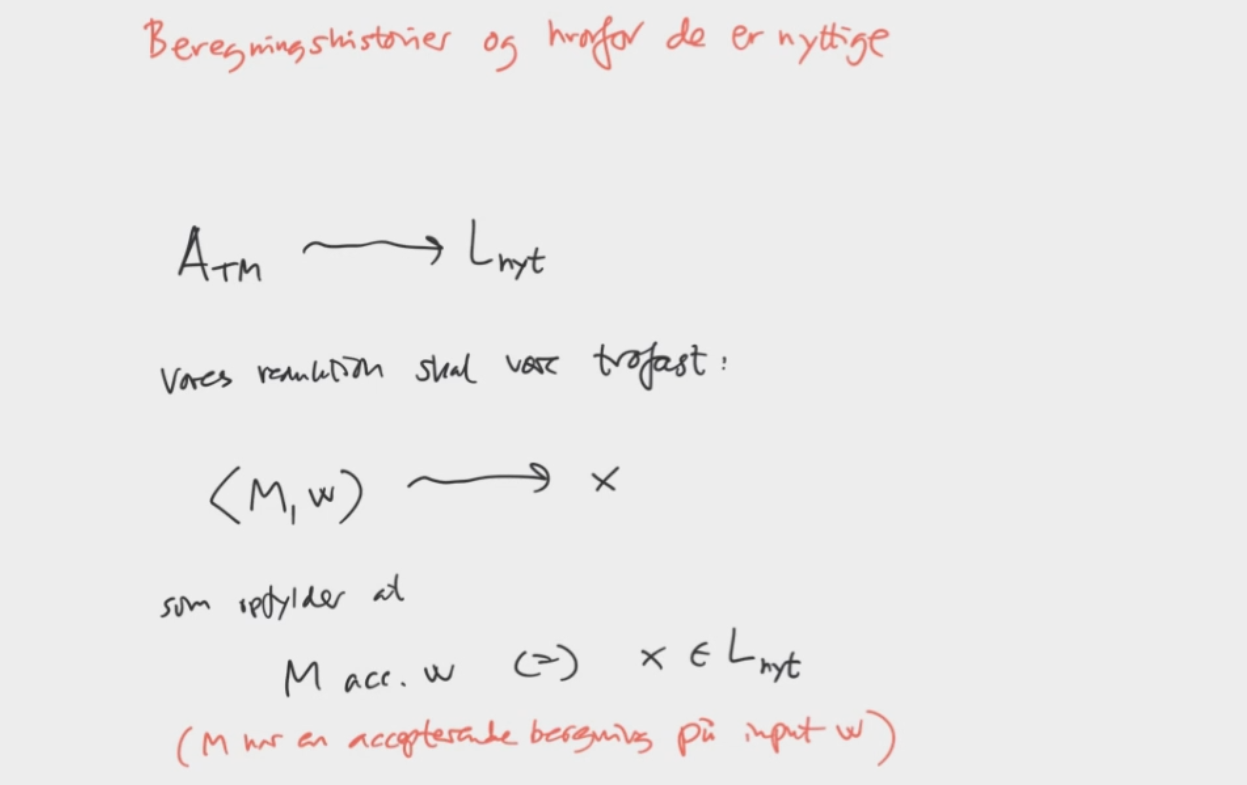 Beregningshistorier og hvorfor de er nyttige
A_TM ⟶ L_nyt
Vores reduktion skal være trofast:
⟨M, w⟩ ⟶ x
som opfylder at
M acc. w (=) x ∈ L_nyt
(M har en accepterende beregning på input w)